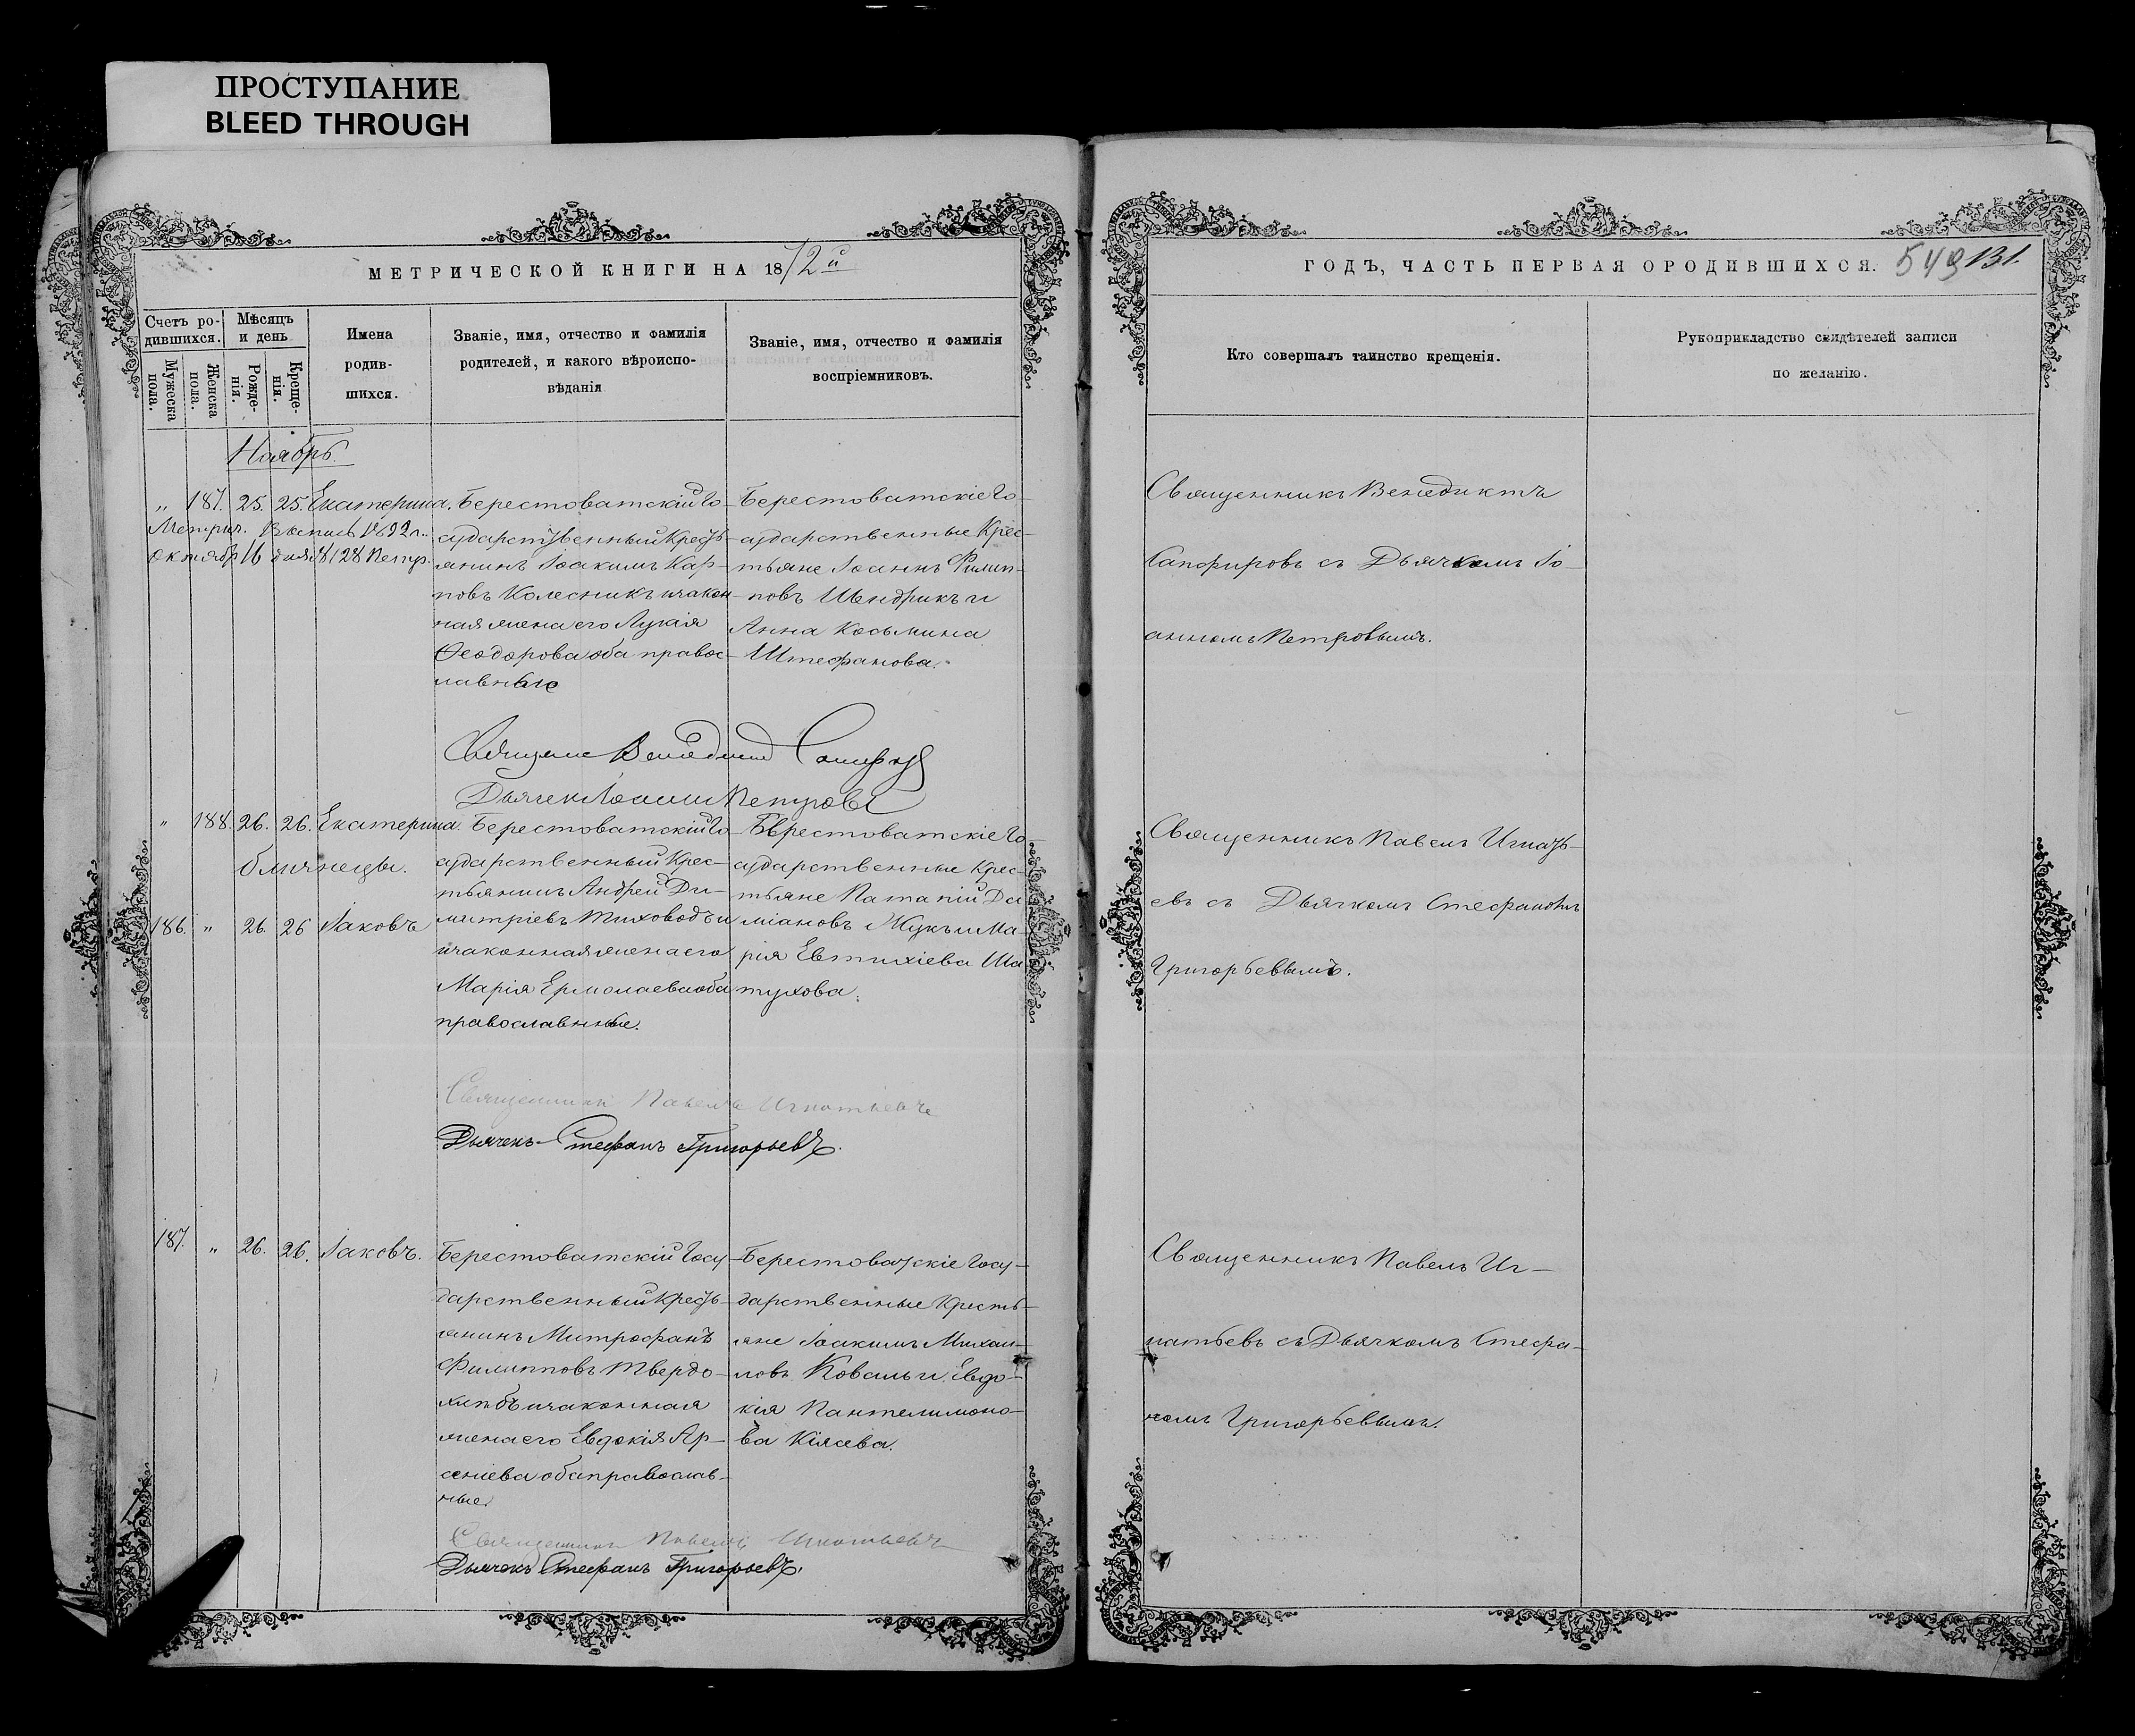 ПРОСТУПАНИЕ
BLEED THROUGH
МЕТРИЧЕСКОЙ КНИГИ НА 1872й
Счетъ родившихся.
Мужеска пола.
Женска пола.
Мѣсяцъ и день
Рожденія.
Крещенія.
Имена
родив-
шихся.
Званіе, имя, отчество и фамилія
родителей, и какого вѣроиспо-
вѣданія
Званіе, имя, отчество и фамилія
воспріемниковъ.
Ноябрь.
„ 187. 25. 25. Екатерина.
Метрич.
Берестоватскій Го-
сударственный Кресть-
янинъ Іоакимъ Кар-
повъ Колесникъ и закон-
ная жена его Лукія
Ѳеодорова оба правос-
лавные
Берестоватскіе Го-
сударственные Крес-
тьяне Іоаннъ Филип-
повъ Швидрикъ и
Анна Косьмина
Штефанова.
Дьячекъ Іоаннъ Петровъ
„ 188. 26. 26. Екатерина.
близнецы.
186. „ 26. 26 Іаковъ
Берестоватскій Го-
сударственный Крес-
тьянинъ Андрей Ди-
митріевъ Тиховодъ и
и законная жена его
Марія Ермолаева оба
православные.
Берестоватскіе Го-
сударственные Крес-
тьяне Патапій Да
міановъ Жукъ и Ма-
рія Евтихіева Ша
тухова.
Священникъ Павелъ Игнатьевъ
Дьячекъ Стефанъ Григорьевъ.
187. „ 26. 26. Іаковъ.
Берестоватскій Госу-
дарственный Кресть-
янинъ Митрофанъ
Филипповъ Твердо-
хлѣбъ и законная
жена его Евдокія Ар-
сеніева оба православ-
ные.
Берестоватскіе Госу-
дарственные Кресть-
яне Іоакимъ Михаи-
ловъ Коваль и Евдо-
кія Пантелимоно-
ва Кіяева.
Священникъ Павелъ Игнатьевъ
Дьячекъ Стефанъ Григорьевъ.
ГОДЪ, ЧАСТЬ ПЕРВАЯ О РОДИВШИХСЯ. 549 131.
Кто совершалъ таинство крещенія.
Рукоприкладство свидѣтелей записи
по желанію.
Священникъ Венедиктъ
Сапфировъ съ Дьячкомъ Іо-
анномъ Петровымъ.
Священникъ Павелъ Игнать-
евъ съ Дьячкомъ Стефаномъ
Григорьевымъ.
Священникъ Павелъ Иг-
натьевъ съ Дьячкомъ Стефа-
номъ Григорьевымъ.